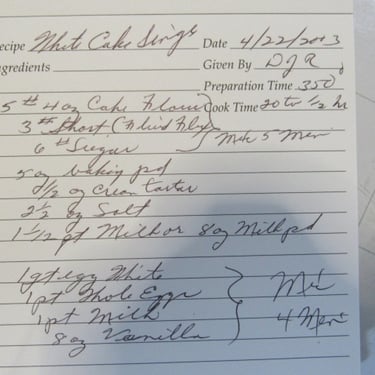 ecipe White Cake Single Date 4/22/2013
ngredients Given By DJR
Preparation Time 350
5 # 4 oz Cake Flour Cook Time 20 to 1/2 hr
3 # Short (
6 # Sugar } Mix 5 Min
5 oz baking pd
2 1/2 oz Cream tartar
2 1/2 oz Salt
1 1/2 qt Milk or 8 oz Milk pd
1 qt egg White
1 pt Whole Eggs } Mix
1 pt Milk 4 Min
8 oz Vanilla